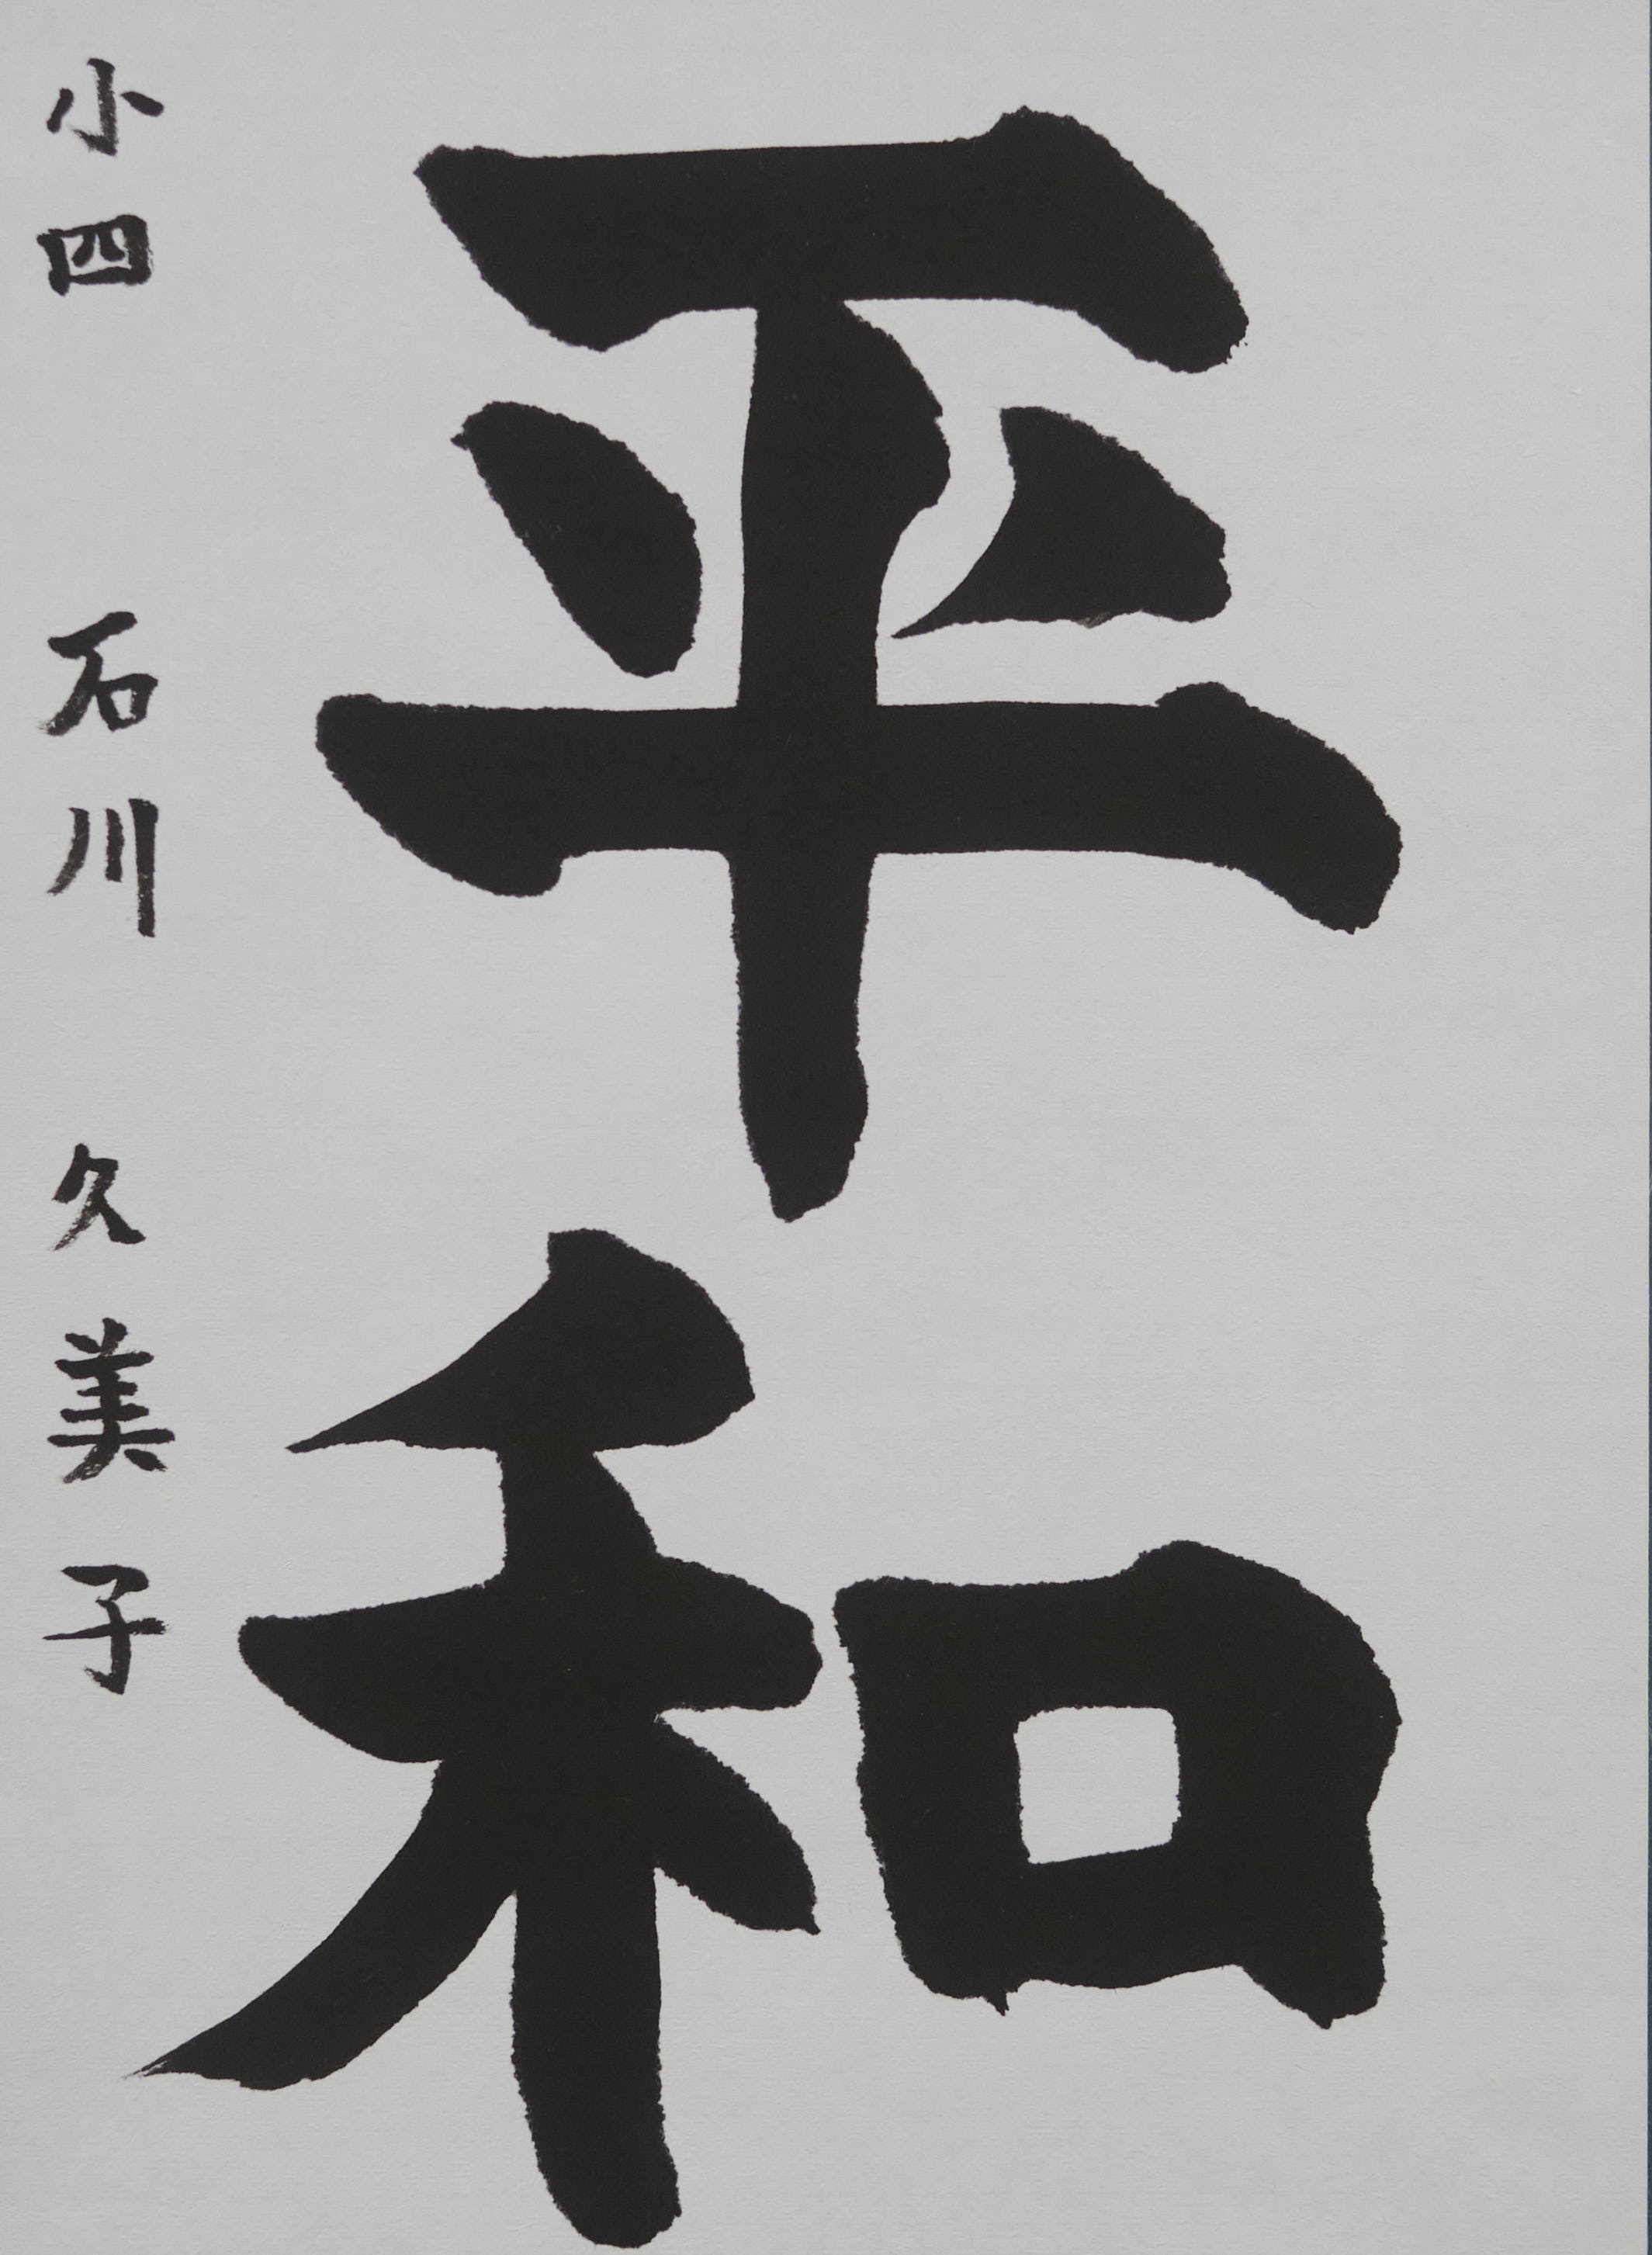 平和
小四 石川 久美子